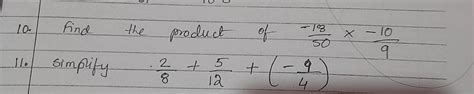 10. Find the product of -18/50 × -10/9
11. Simplify 2/8 + 5/12 + (-9/4)